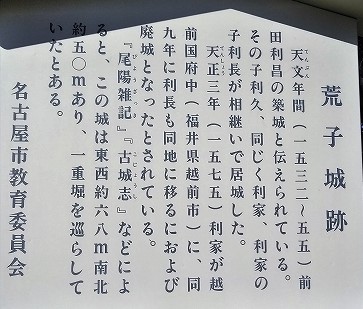 荒子城跡
天文年間(一五三二~五五)前
田利昌の築城と伝えられている。
その子利久、同じく利家、利家の
子利長が相継いで居城した。
天正三年(一五七五)利家が越
前国府中(福井県越前市)に、同
九年に利長も同地に移るにおよび
廃城となったとされている。
『尾陽雑記』『古城志』などによ
ると、この城は東西約六八m南北
約五〇mあり、一重堀を巡らして
いたとある。
名古屋市教育委員会